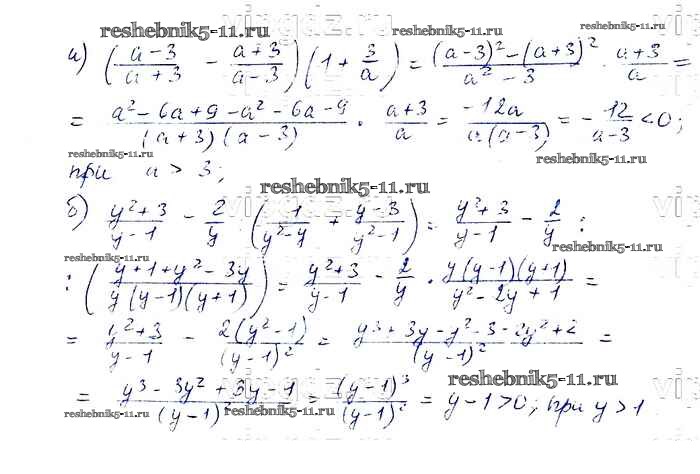 reshebnik5-11.ru
reshebnik5-11.ru
а) ((a-3)/(a+3) - (a+3)/(a-3))(1 + 3/a) = ((a-3)² - (a+3)²)/(a² - 3) · (a+3)/a =
= (a² - 6a + 9 - a² - 6a - 9)/((a+3)(a-3)) · (a+3)/a = (-12a)/(a(a-3)) = -12/(a-3) < 0;
reshebnik5-11.ru
reshebnik5-11.ru
при a > 3;
reshebnik5-11.ru
б) (y²+3)/(y-1) - 2/y : (1/(y²-y) + (y-3)/(y²-1)) = (y²+3)/(y-1) - 2/y :
reshebnik5-11.ru
reshebnik5-11.ru
: ((y+1+y²-3y)/(y(y-1)(y+1))) = (y²+3)/(y-1) - 2/y · (y(y-1)(y+1))/(y²-2y+1) =
= (y²+3)/(y-1) - (2(y²-1))/((y-1)²) = (y³+3y-y²-3-2y²+2)/((y-1)²) =
reshebnik5-11.ru
= (y³-3y²+3y-1)/((y-1)²) = ((y-1)³)/((y-1)²) = y-1>0; при y>1
reshebnik5-11.ru
reshebnik5-11.ru
reshebnik5-11.ru